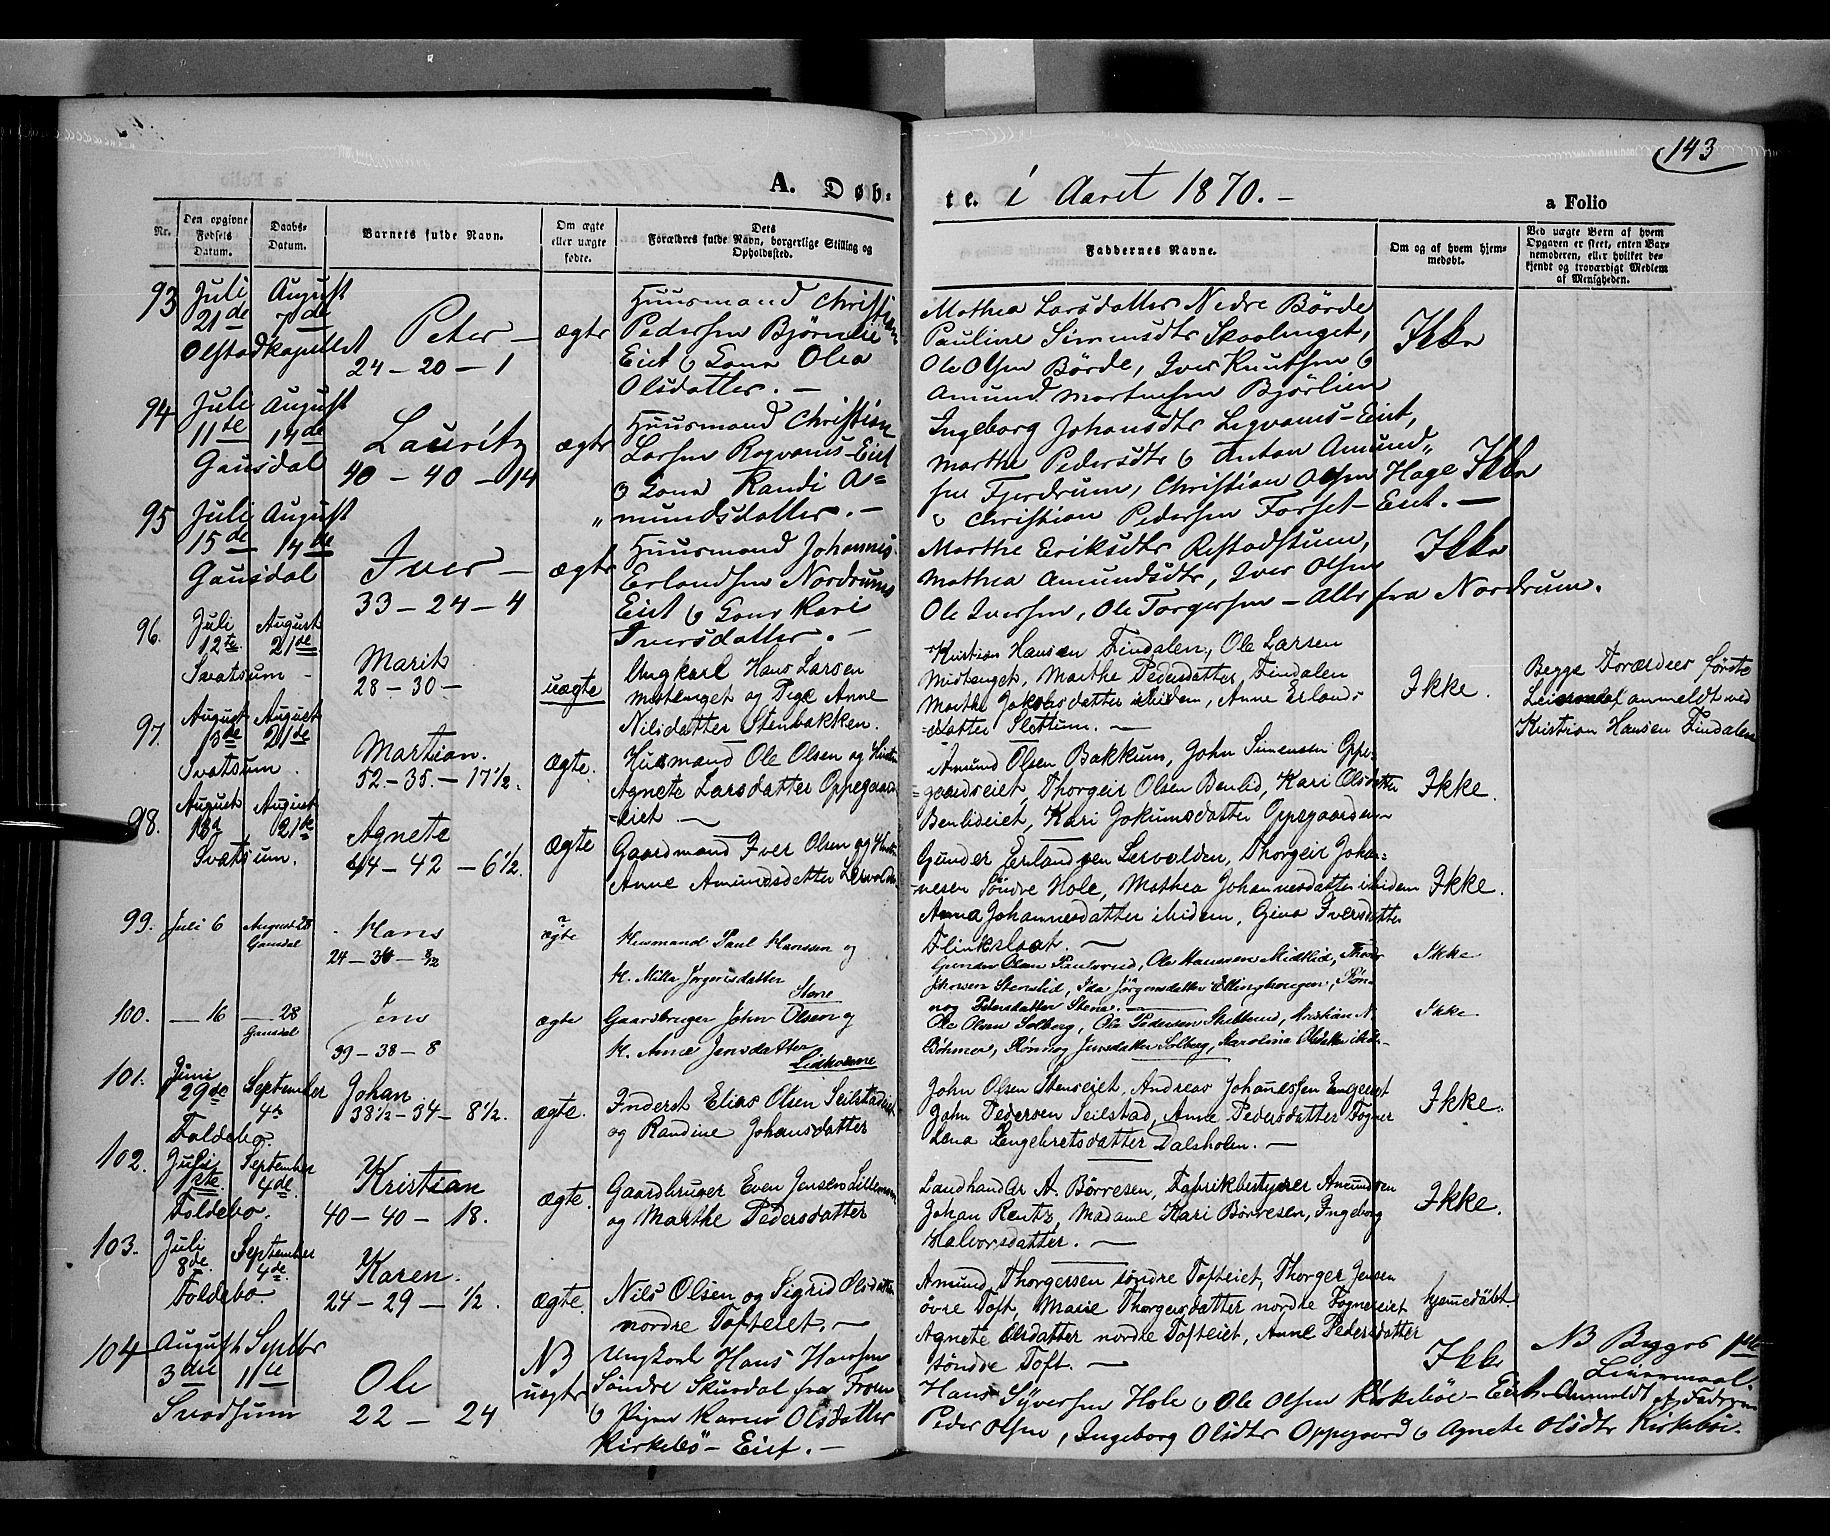 143
A. Døb-
te. i Aaret 1870. -
a Folio
Nr.
Den opgivne Fødsels Datum.
Daabs-Datum.
Barnets fulde Navn.
Om ægte eller uægte fødte.
Dets Forældres fulde Navn, borgerlige Stilling og Opholdssted.
Faddernes Navne.
Om og af hvem hjemmedøbt.
Ved uægte Børn af hvem Opgaven er skeet, enten Barnemoderen, eller hvilket bekjendt og troværdigt Medlem af Menigheden.
93
Juli 21de
August 7de
Olstadkapellet
Peter -
24 - 20 - 1
ægte
Huusmand Christian
Pedersen Bjørnlie
Eiet & Kona Olea
Olsdatter. -
Mathea Larsdatter Nedre Börde
Pauline Simensdtr
Ole Olsen Börde, Iver Knutsen &
Amund Mortensen Bjørlien
Ikke
94
Juli 11te
August 14de
Gausdal
Lauritz
40 - 40 - 14
ægte
Huusmand Christian
Larsen Eiet
& Kona Randi A=
mundsdatter. -
Ingeborg Johansdtr Eiet,
Marthe Pedersdtr & Anton Amund"
sen Fjerdrum, Christian Olsen Hage
& Christian Pedersen Forset - Eiet. -
Ikke
95
Juli 15de
August 14de
Gausdal
Iver -
33 - 24 - 4
ægte
Huusmand Johannes
Erlandsen Nordrums
Eiet & Kona Kari
Iversdatter. -
Marthe Eriksdtr
Mathea Amundsdtr, Iver Olsen
Ole Iversen, Ole Torgersen - Alle fra Nordrum.
Ikke
96.
Juli 12te
August 21de
Svatsum -
Marit
28 - 30 -
uægte
Ungkarl Hans Larsen
og Pige Anne
Nilsdatter Stenbakken.
Kristian Hansen Findalen, Ole Larsen
Midtenget, Marthe Pedersdatter Findalen
Marthe Jakobsdatter ibidem, Anne Erlands-
datter Slettum. -
Ikke.
Begge Forældres første
Leiermaal anmeldt ved
Kristian Hansen Findalen
97.
August 13de
August 21de
Svatsum.
Martian.
52 - 35 - 17½.
ægte.
Husmand Ole Olsen og Hustru
Agnete Larsdatter Oppegaard
=eiet -
Amund Olsen Bakkum, John Simensen Oppe-
=gaardseiet, Thorgeir Olsen Benlid, Kari Olsdatter
Benlideiet, Kari Jokumsdatter Oppegaarden -
Ikke.
98.
August
August 21de
Svatsum.
Agnete
44 - 42 - 6½.
ægte
Gaardmand Iver Olsen og Hustru
Anne Amundsdatter
Gunder Erlandsen Lervolden, Thorgeir Johan=
nesen Söndre Hole, Mathea Johannesdatter ibidem
Anna Johannesdatter ibidem, Gina Iversdatter
Ikke.
99.
Juli 6
August 28
Gausdal
Hans
24 - 30 -
ægte
Husmand Paul Hanssen og
H. Milla Jørgensdatter
Stene
Gunder Olsen Ole Hanssen Midtlid,
Stenslid, Ida Jörgensdatter Ellinghaugen, Rön-
nog Pedersdatter Stene. -
Ikke
100.
- 16
- 28
Gausdal
Jens
39 - 38 - 8
ægte
Gaardbruger John Olsen og
H. Anne Jensdatter
Ole Olsen Solberg, Ole Pedersen Kristian N.
Böhmer, Rönnog Jensdatter Solberg, Karoline
Ikke
101.
Juni 29de
September 4de
Foldebo.
Johan
38½ - 34 - 8½.
ægte.
Inderst Elias Olsen Seilstadeiet
og Randine Johansdatter
John Olsen Stenseiet, Andreas Johannessen Engeeiet
John Pedersen Seilstad, Anne Pedersdatter Fogner
Lena Engebretsdatter Dalsholen. -
Ikke.
102.
Juli 1ste
September 4de.
Foldebo.
Kristian
40 - 40 - 18.
ægte.
Gaardbruger Even Jensen
og Marthe Pedersdatter
Landhandler A. Börresen, Fabrikbestyrer Amundsen
Johan Rentz, Madame Kari Börresen, Ingeborg
Halvorsdatter. -
Ikke.
103.
Juli 8de.
September 4de.
Foldebo.
Karen.
24 - 29 - ½.
ægte.
Nils Olsen og Sigrid Olsdatter
nordre Tofteiet. -
Amund Thorgersen söndre Tofteiet, Thorger Jensen
övre Toft, Marie Thorgersdatter nordre Fognereiet
Agnete Olsdatter nordre Tofteiet, Anne Pedersdatter
söndre Toft. -
hjemmedöbt
104
August 3die
Septbr 11te
Svadsum
Ole
22 - 24
NB
uægte
Ungkarl Hans Hansen
Søndre Skurdal fra Fron
& Pigen Karen Olsdatter
Kirkebø - Eiet. -
Hans Syversen Hole & Ole Olsen Kirkebøe - Eiet.
Peder Olsen, Ingeborg Olsdtr Oppegaard & Agnete Olsdtr Kirkebøe.
Ikke
NB Begges 1ste
Leiermaal.
Anmeldt af Faderen